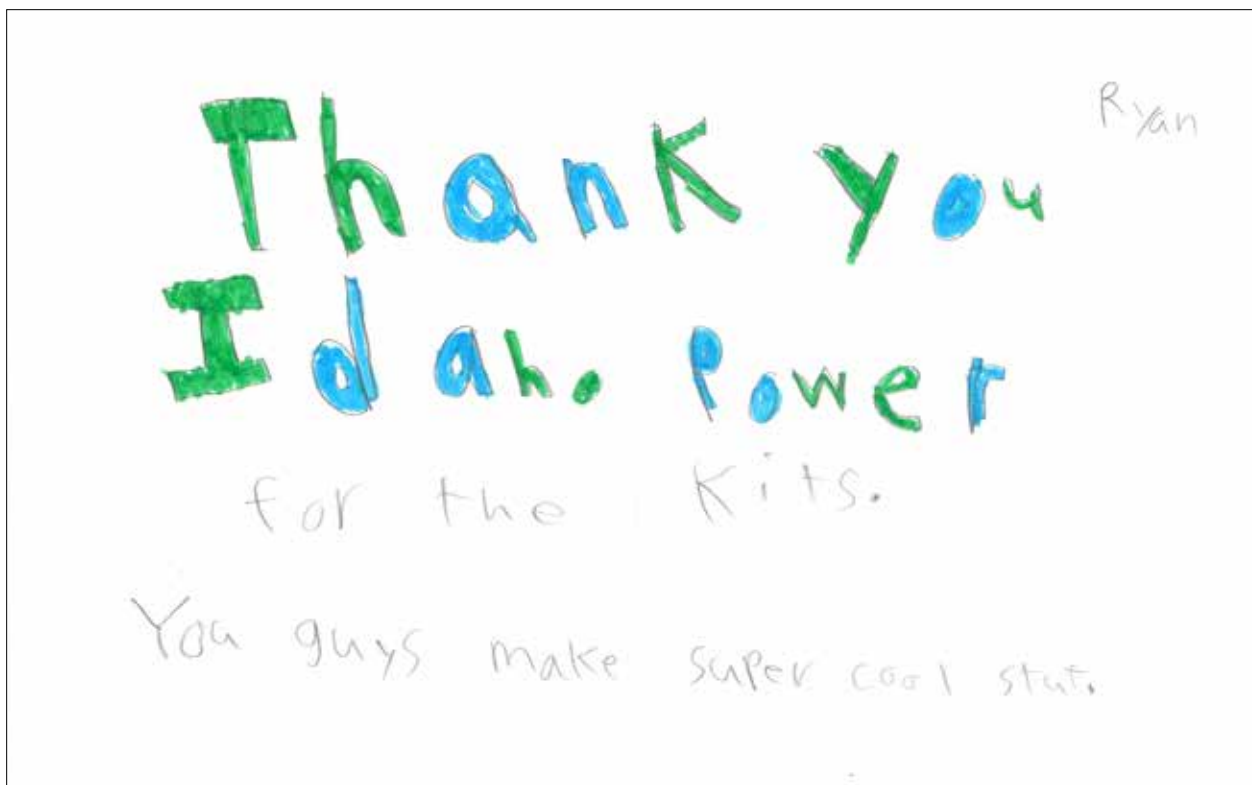 Ryan
Thank you
Idaho Power
for the Kits.
You guys make super cool stuf.